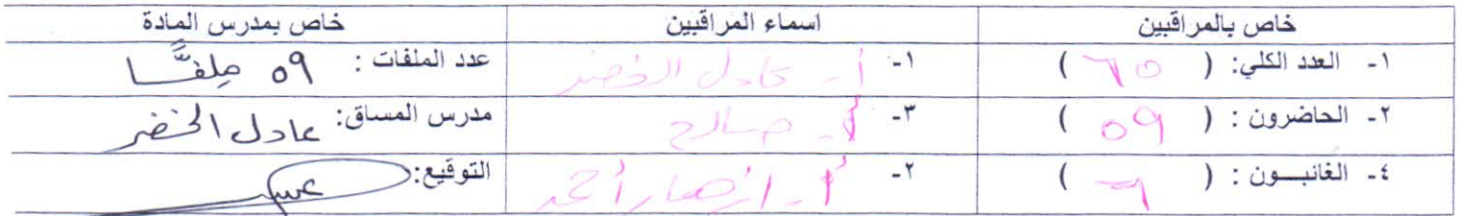 خاص بالمراقبين اسماء المراقبين خاص بمدرس المادة
١- العدد الكلي: ( ٦٥ ) ١- أ. عادل الخضر عدد الملفات : ٥٩ ملفًّا
٢- الحاضرون : ( ٥٩ ) ٣- أ. صالح مدرس المساق: عادل الخضر
٤- الغائبـــون : ( ٦ ) ٢- أ. أحمد التوقيع: